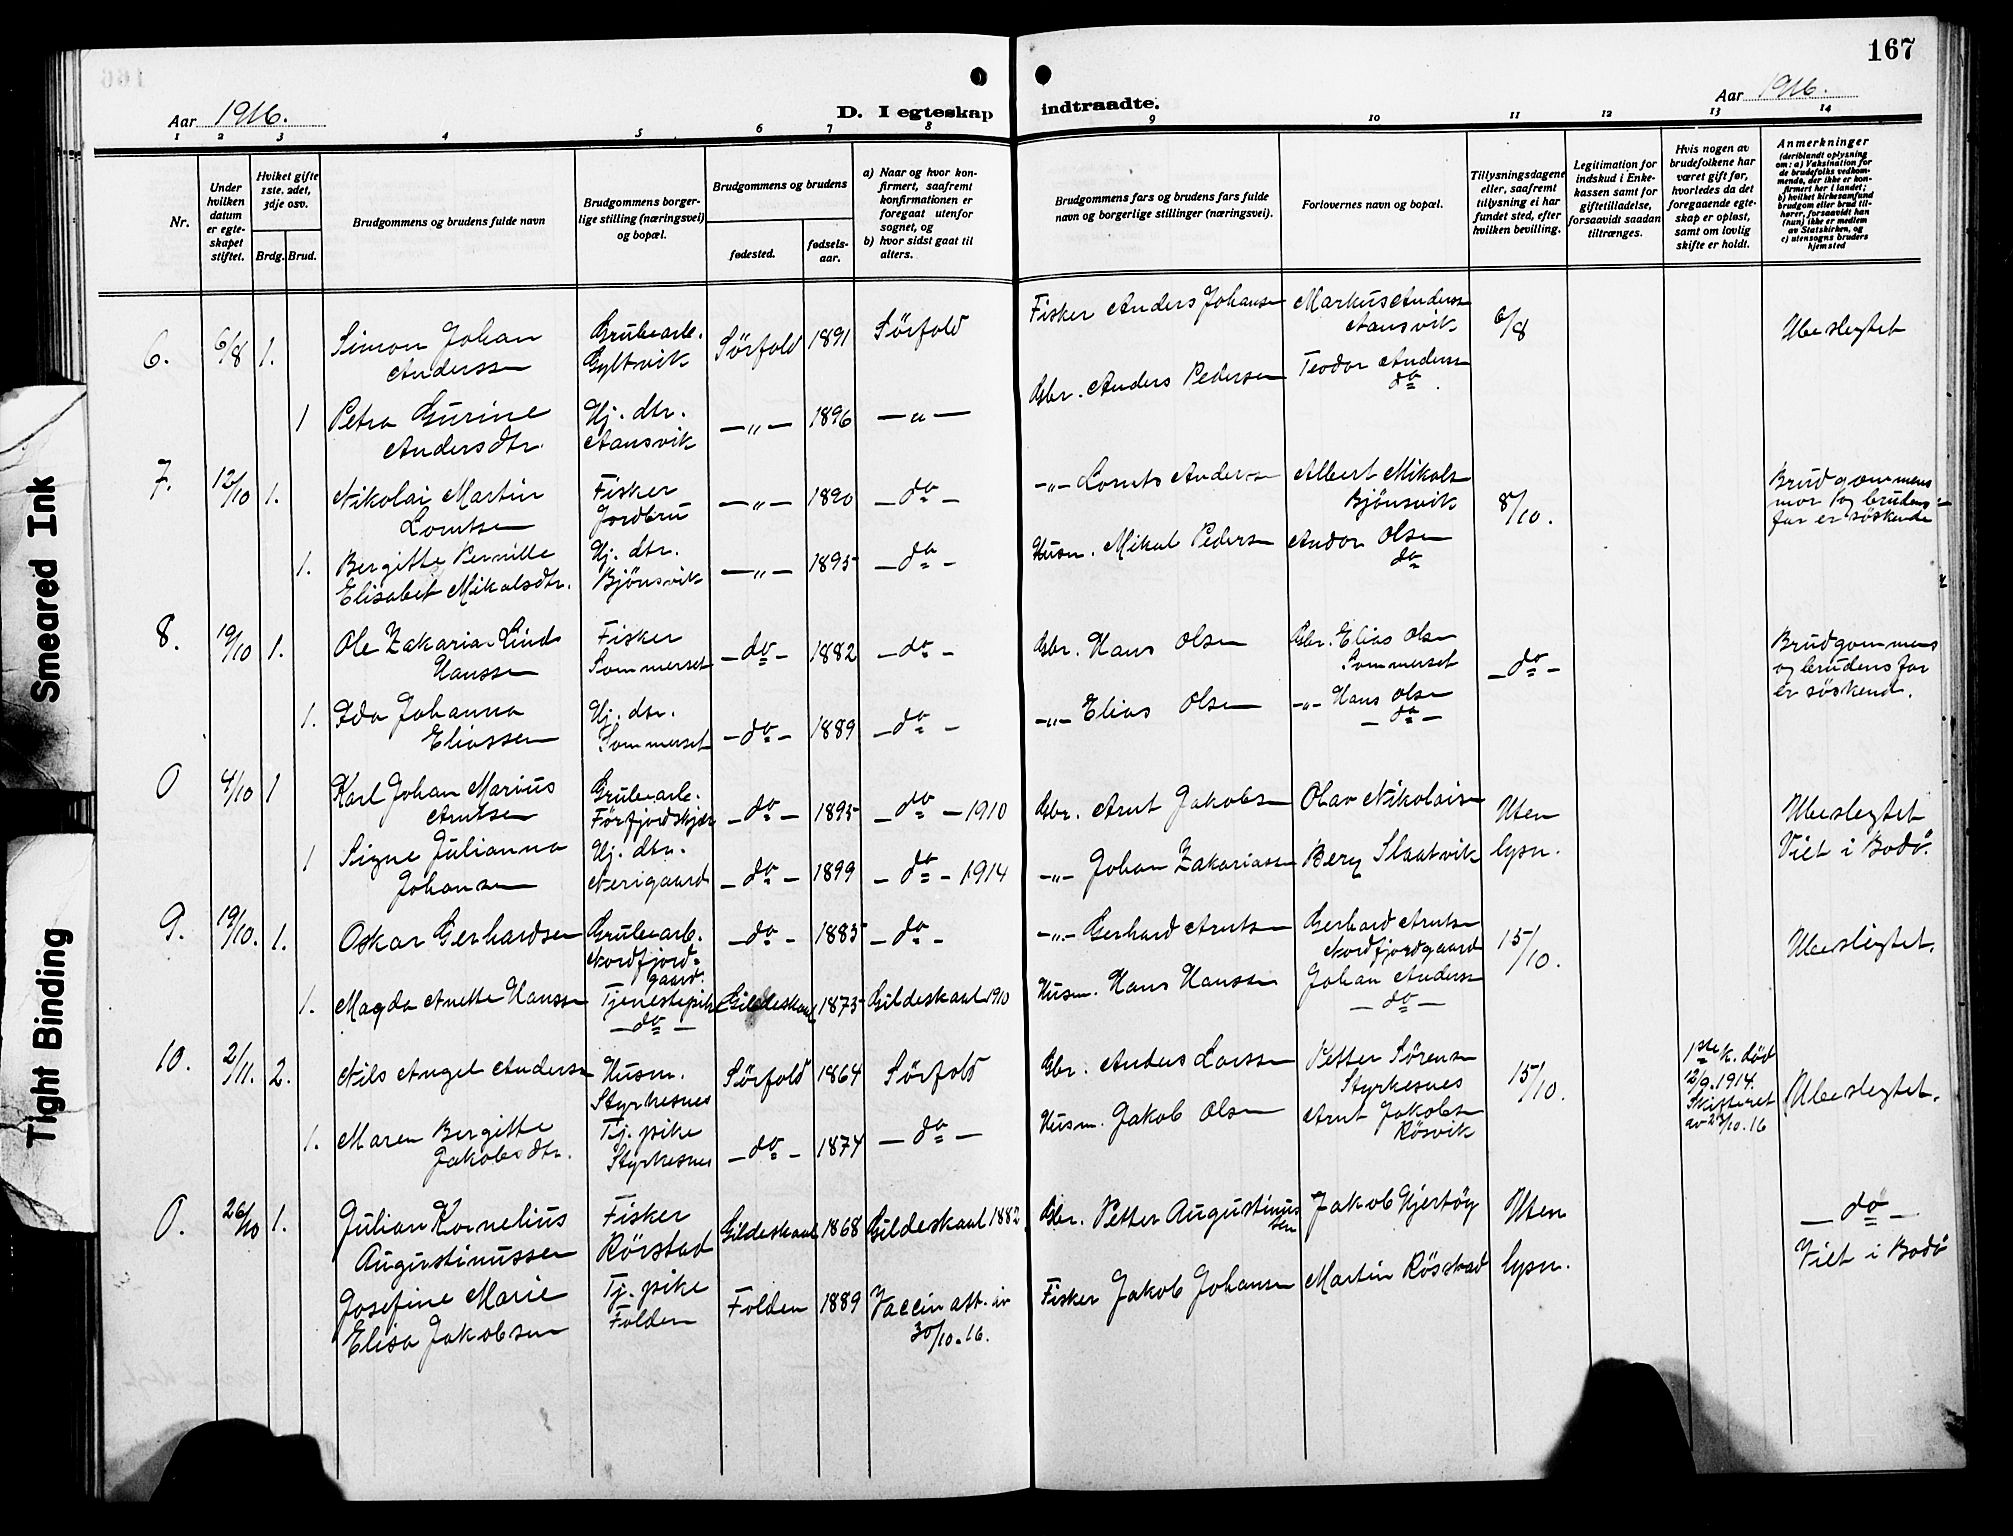 166
167
Aar 1916.
D. I egteskap indtraadte.
Aar 1916.
1 2 3 4 5 6 7 8 9 10 11 12 13 14
Nr.
Under hvilken datum er egteskapet stiftet.
Hvilket gifte 1ste, 2det, 3dje osv.
Brdg. Brud.
Brudgommens og brudens fulde navn
Brudgommens borgerlige stilling (næringsvei) og bopæl.
Brudgommens og brudens
fødested.
fødselsaar.
a) Naar og hvor konfirmert, saafremt konfirmationen er foregaat utenfor sognet, og
b) hvor sidst gaat til alters.
Brudgommens fars og brudens fars fulde navn og borgerlige stillinger (næringsvei).
Forlovernes navn og bopæl.
Tillysningsdagene eller, saafremt tillysning ei har fundet sted, efter hvilken bevilling.
Legitimation for indskud i Enkekassen samt for giftetilladelse, forsaavidt saadan tiltrænges.
Hvis nogen av brudefolkene har været gift før, hvorledes da det foregaaende egteskap er opløst, samt om lovlig skifte er holdt.
Anmerkninger
(deriblandt oplysning om: a) Vaksination for de brudefolks vedkommende, der ikke er konfirmert her i landet; b) hvilket kirkesamfund brudgom eller brud tilhører, forsaavidt han (hun) ikke er medlem av Statskirken, og c) utensogns bruders hjemsted
6. 6/8 1. Simon Johan Anderssen Grubearb. Gyltvik Sörfold 1891 Sörfold Fisker Anders Johansen Markus Anderss Aansvik 6/8 Ubeslegtet
1 Petra Gurine Andersdtr. Hj. dtr. Aansvik —"— 1896 —"— Gbr. Anders Pedersen Teodor Anderss do
7. 12/10 1. Nikolai Martin Lorntsen Fisker Jordbru —"— 1890 —do— —"— Lornts Andersen Albert Mikals Bjönsvik 8/10. Brudgommens mor og brudens far er söskende
1. Bergitte Pernille Elisabet Mikalsdtr. Hj. dtr. Bjönsvik —"— 1895 —do— Husm. Mikal Pedersen Andor Olsen do
8. 19/10 1. Ole Zakarias Lind Hanssen Fisker Sommerset —do— 1882 —do— Gbr. Hans Olsen Gbr. Elias Olsen Sommerset —do— Brudgommens og brudens far er söskend.
1. Ida Johanna Eliassen Hj. dtr. Sommerset —do— 1889 —do— —"— Elias Olsen —"— Hans Olsen —do—
0 4/10 1 Karl Johan Marius Arntsen Grubearb. Förfjordskjær —do— 1895 —do— 1910 Gbr. Arnt Jakobsen Olav Nikolais Uten lysn. Ubeslegtet Viet i Bodö.
1 Signe Julianna Johansen Hj. dtr. Nerigaard —do— 1899 —do— 1914 —"— Johan Zakariassen Berg Slaatvik
9. 19/10. 1. Oskar Gerhardsen Grubearb. Nordfjordgaard. —do— 1885 —do— —"— Gerhard Arntsen Gerhard Arntsen Nordfjordgaard 15/10. Ubeslegtet.
1. Magda Anette Hanssen Tjenestepike —do— Gildeskaal 1875 Gildeskaal 1910 Husm. Hans Hanssen Johan Anderss —do—
10. 2/11. 2. Nils Angel Anderss Husm. Styrkesnes Sörfold 1864 Sörfold Gbr. Anders Larssen Petter Sörensen Styrkesnes 15/10. 1ste k. död 12/9.1914. Skifteret av 23/10.16 Ubeslegtet.
1. Maren Bergitte Jakobsdtr. Tj. pike Styrkesnes —do— 1874 —do— Husm. Jakob Olsen Arnt Jakobsen Rösvik
0. 26/10 1. Julian Kornelius Augustinussen Fisker Rörstad Gildeskaal 1868 Gildeskaal 1882. Gbr. Petter Augustinussen Jakob Hjertöy Uten lysn. —do— Viet i Bodö
Josefine Marie Elisa Jakobsen Tj. pike Folden Folden 1889 Vaccin att. av 30/10.16. Fisker Jakob Johansen Martin Rösstad
Smeared Ink
Tight Binding